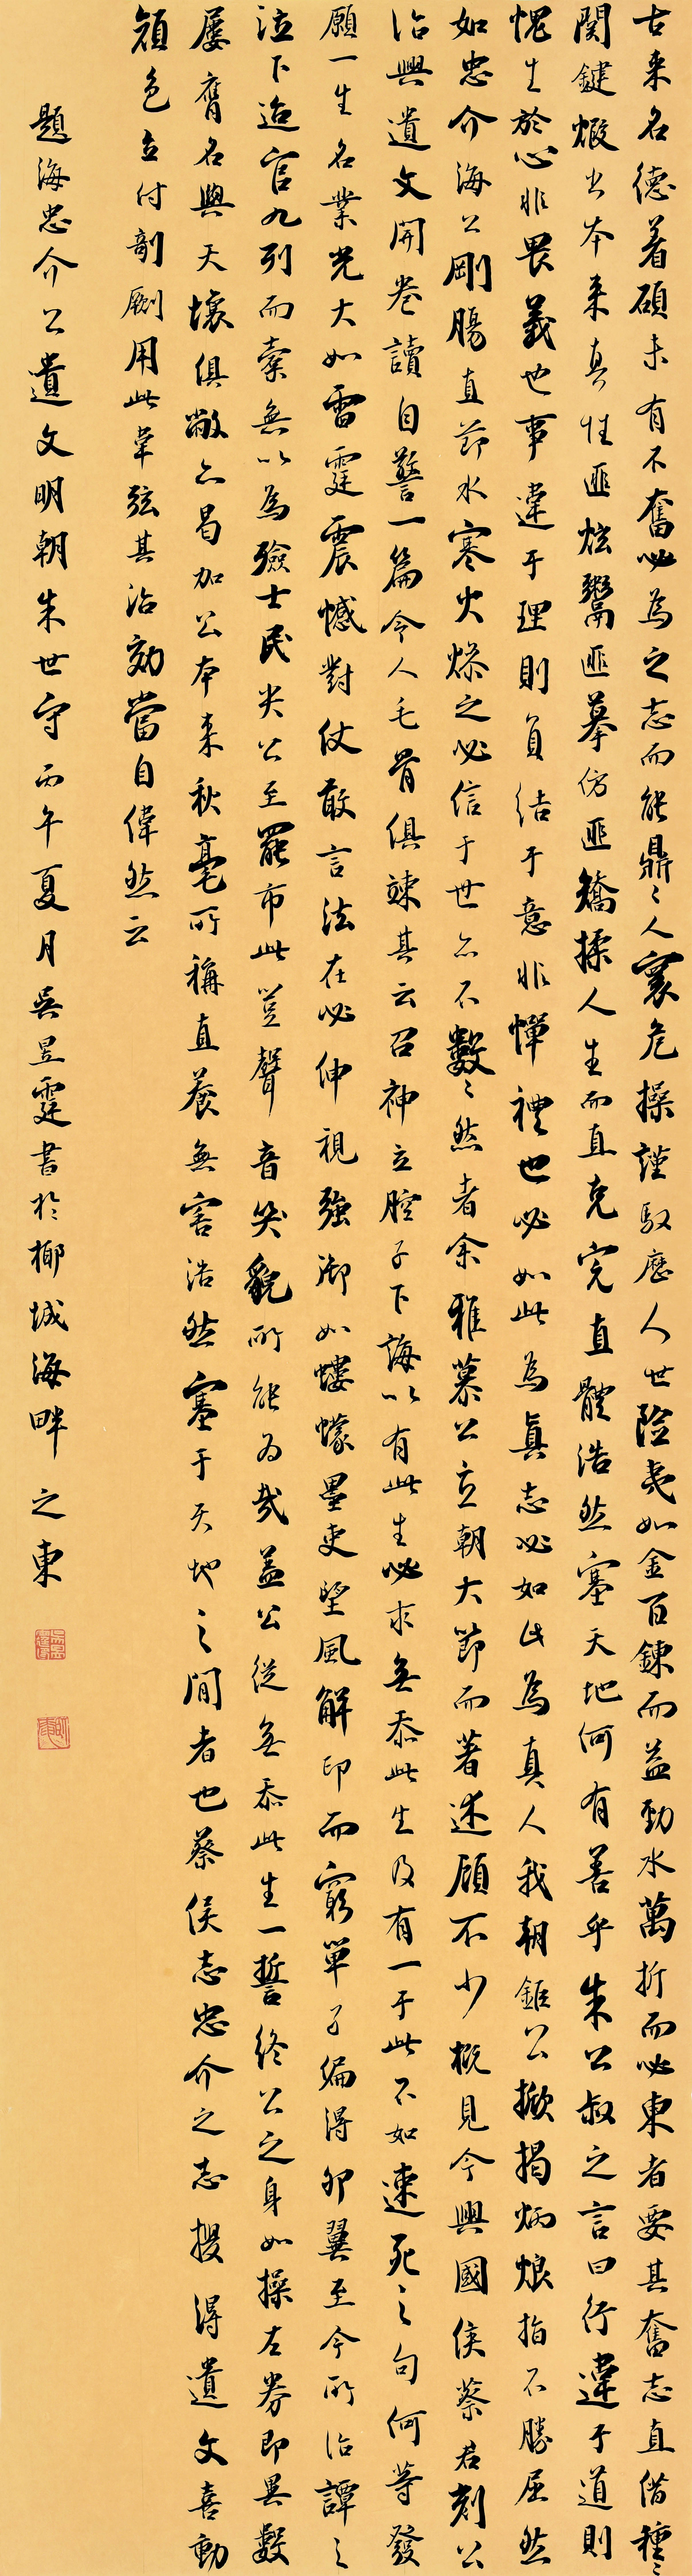 古来名德着碩未有不奮必為之志而能鼎〻人寰危操謹馭歷人世險夷如金百鍊而益勁水萬折而必東者要其奮志直借種〻
関鍵煅出本来真性匪炫鬻匪摹仿匪矯揉人生而直克完直體浩然塞天地何有善乎朱公叔之言曰行違于道則
愧生於心非畏義也事違于理則負結于意非憚禮也必如此為真志必如此為真人我朝鉅公掀揭炳烺指不勝屈然
如忠介海公剛腸直節水寒火燥之必信于世亦不數〻然者余雅慕公立朝大節而著述顧不少概見今興國侯蔡君刻公
治興遺文開卷讀自警一篇令人毛骨俱竦其云召神立腔子下誨以有此生必求無忝此生及有一于此不如速死之句何等發
願一生名業光大如雷霆震憾對仗敢言法在必伸視強御如螻蠓墨吏望風解印而窮單孑偏得卵翼至今所治譚之
泣下迨官九列而橐無以為殮士民哭公至罷市此豈聲音笑貌所能為哉蓋公從無忝此生一誓終公之身如操左券即異數
屢膺名與天壤俱敝亦曷加公本来秋毫所稱直養無害浩然塞于天地之間者也蔡侯志忠介之志搜得遺文喜動
顏色立付剞劂用此韋弦其治効當自偉然云
題海忠介公遺文明朝朱世守丙午夏月吳昱霆書於椰城海畔之東